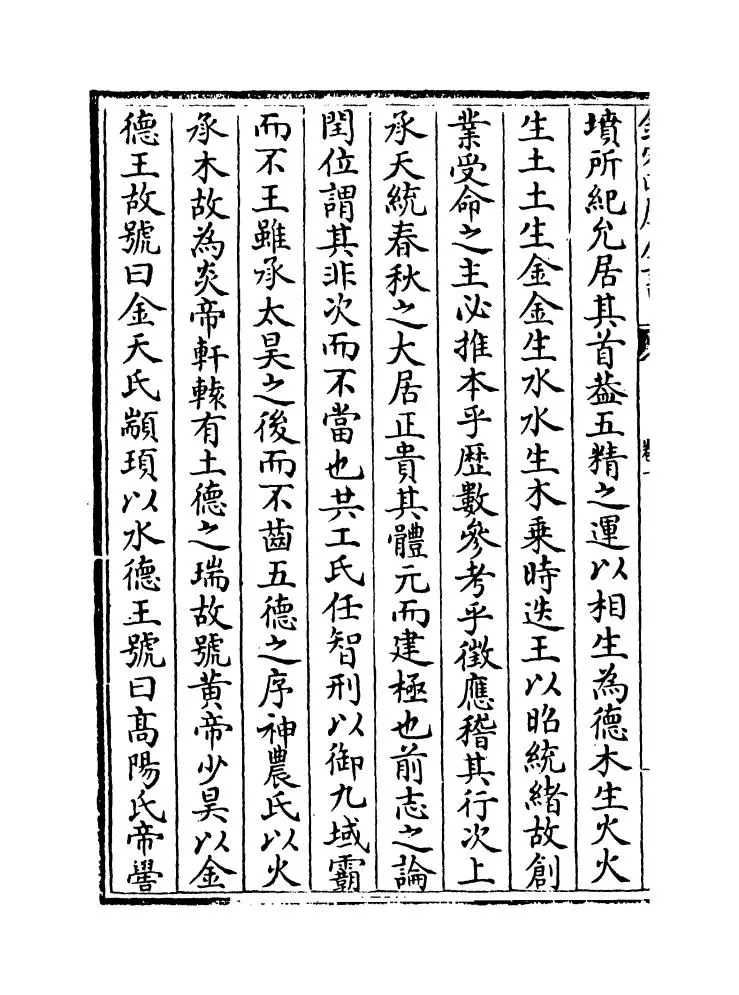 墳所紀允居其首葢五精之運以相生為德木生火火
生土土生金金生水水生木乗時迭王以昭統緒故創
業受命之主必推本乎歴數參考乎徵應稽其行次上
承天統春秋之大居正貴其體元而建極也前志之論
閏位謂其非次而不當也共工氏任智刑以御九域霸
而不王雖承太昊之後而不齒五德之序神農氏以火
承木故為炎帝軒轅有土德之瑞故號黄帝少昊以金
德王故號曰金天氏顓頊以水德王號曰髙陽氏帝嚳